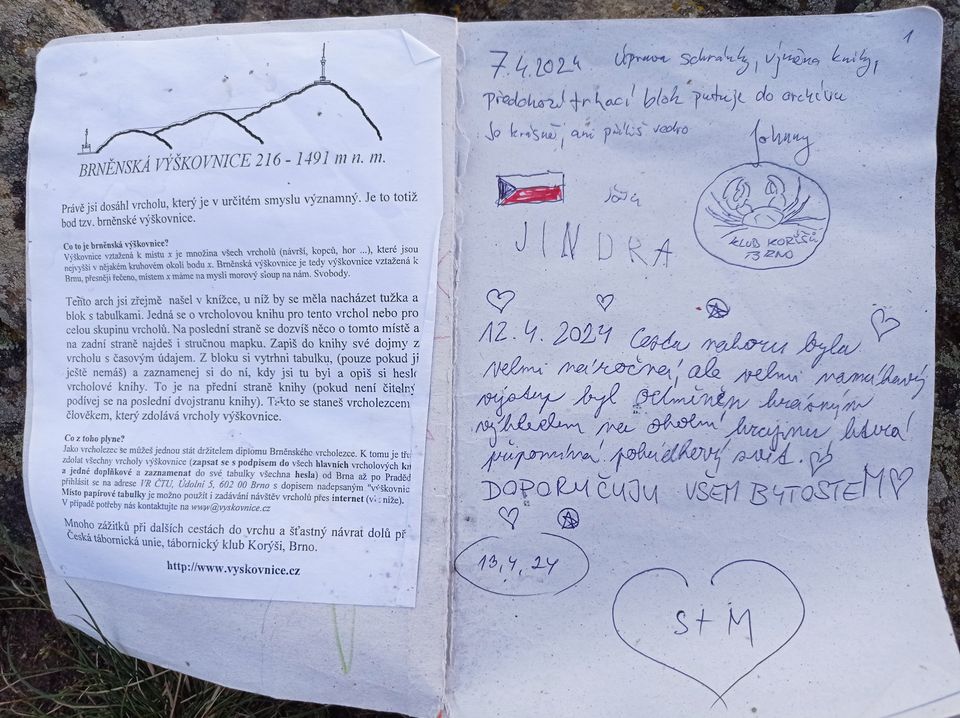 BRNĚNSKÁ VÝŠKOVNICE 216 - 1491 m n. m.
Právě jsi dosáhl vrcholu, který je v určitém smyslu významný. Je to totiž
bod tzv. brněnské výškovnice.
Co to je brněnská výškovnice?
Výškovnice vztažená k místu x je množina všech vrcholů (návrší, kopců, hor ...), které jsou
nejvyšší v nějakém kruhovém okolí bodu x. Brněnská výškovnice je tedy výškovnice vztažená k
Brnu, přesněji řečeno, místem x máme na mysli morový sloup na nám. Svobody.
Tento arch jsi zřejmě našel v knížce, u níž by se měla nacházet tužka a
blok s tabulkami. Jedná se o vrcholovou knihu pro tento vrchol nebo pro
celou skupinu vrcholů. Na poslední straně se dozvíš něco o tomto místě a
na zadní straně najdeš i stručnou mapku. Zapiš do knihy své dojmy z
vrcholu s časovým údajem. Z bloku si vytrhni tabulku, (pouze pokud ji
ještě nemáš) a zaznamenej si do ní, kdy jsi tu byl a opiš si heslo
vrcholové knihy. To je na přední straně knihy (pokud není čitelný
podívej se na poslední dvojstranu knihy). Takto se staneš vrcholezcem
člověkem, který zdolává vrcholy výškovnice.
Co z toho plyne?
Jako vrcholezec se můžeš jednou stát držitelem diplomu Brněnského vrcholezce. K tomu je tř
zdolat všechny vrcholy výškovnice (zapsat se s podpisem do všech hlavních vrcholových kn
a jedné doplňkové a zaznamenat do své tabulky všechna hesla) od Brna až po Praděd
přihlásit se na adrese VR ČTU, Údolní 5, 602 00 Brno s dopisem nadepsaným "výškovnic
Místo papírové tabulky je možno použít i zadávání návštěv vrcholů přes internet (viz níže).
V případě potřeby nás kontaktujte na www@vyskovnice.cz
Mnoho zážitků při dalších cestách do vrchu a šťastný návrat dolů př
Česká tábornická unie, tábornický klub Korýši, Brno.
http://www.vyskovnice.cz
1
7.4.2024 Úprava schránky, výměna knihy,
předchozí trhací blok putuje do archivu
Je krásně, ani příliš vedro
Johnny
JINDRA
KLUB KORÝŠŮ
BRNO
12.4.2024 Cesta nahoru byla
velmi náročná, ale velmi namáhavý
výstup byl odměněn krásným
výhledem na okolní krajinu která
připomíná pohádkový svět.
DOPORUČUJU VŠEM BYTOSTEM
13.4.24
S+M